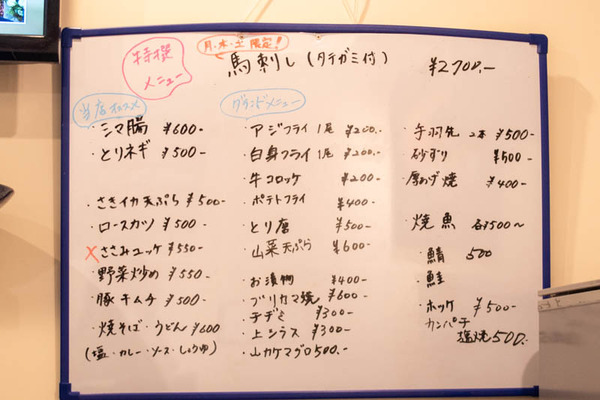 特撰
メニュー
月・水・土 限定!
馬刺し (タテガミ付) ¥2700.-
当店オススメ
・シマ腸 ¥600-
・とりネギ ¥500-
・さきイカ天ぷら ¥500-
・ロースカツ ¥500-
×ささみユッケ ¥550-
・野菜炒め ¥550-
・豚キムチ ¥500-
・焼そば・うどん ¥600
(塩・カレー・ソース・しょうゆ)
グランドメニュー
・アジフライ 1尾 ¥200.-
・白身フライ 1尾 ¥200.-
・牛コロッケ ¥200-
・ポテトフライ ¥400-
・とり唐 ¥500-
・山菜天ぷら ¥600-
・お漬物 ¥400-
・ブリカマ焼 ¥600-
・チヂミ ¥300-
・上シラス ¥300-
・山カケマグロ500.-
・手羽先 2本 ¥500-
・砂ずり ¥500-
・厚あげ焼 ¥400-
・焼魚 各¥500~
・鯖 500
・鮭
・ホッケ ¥500-
カンパチ
塩焼500.-